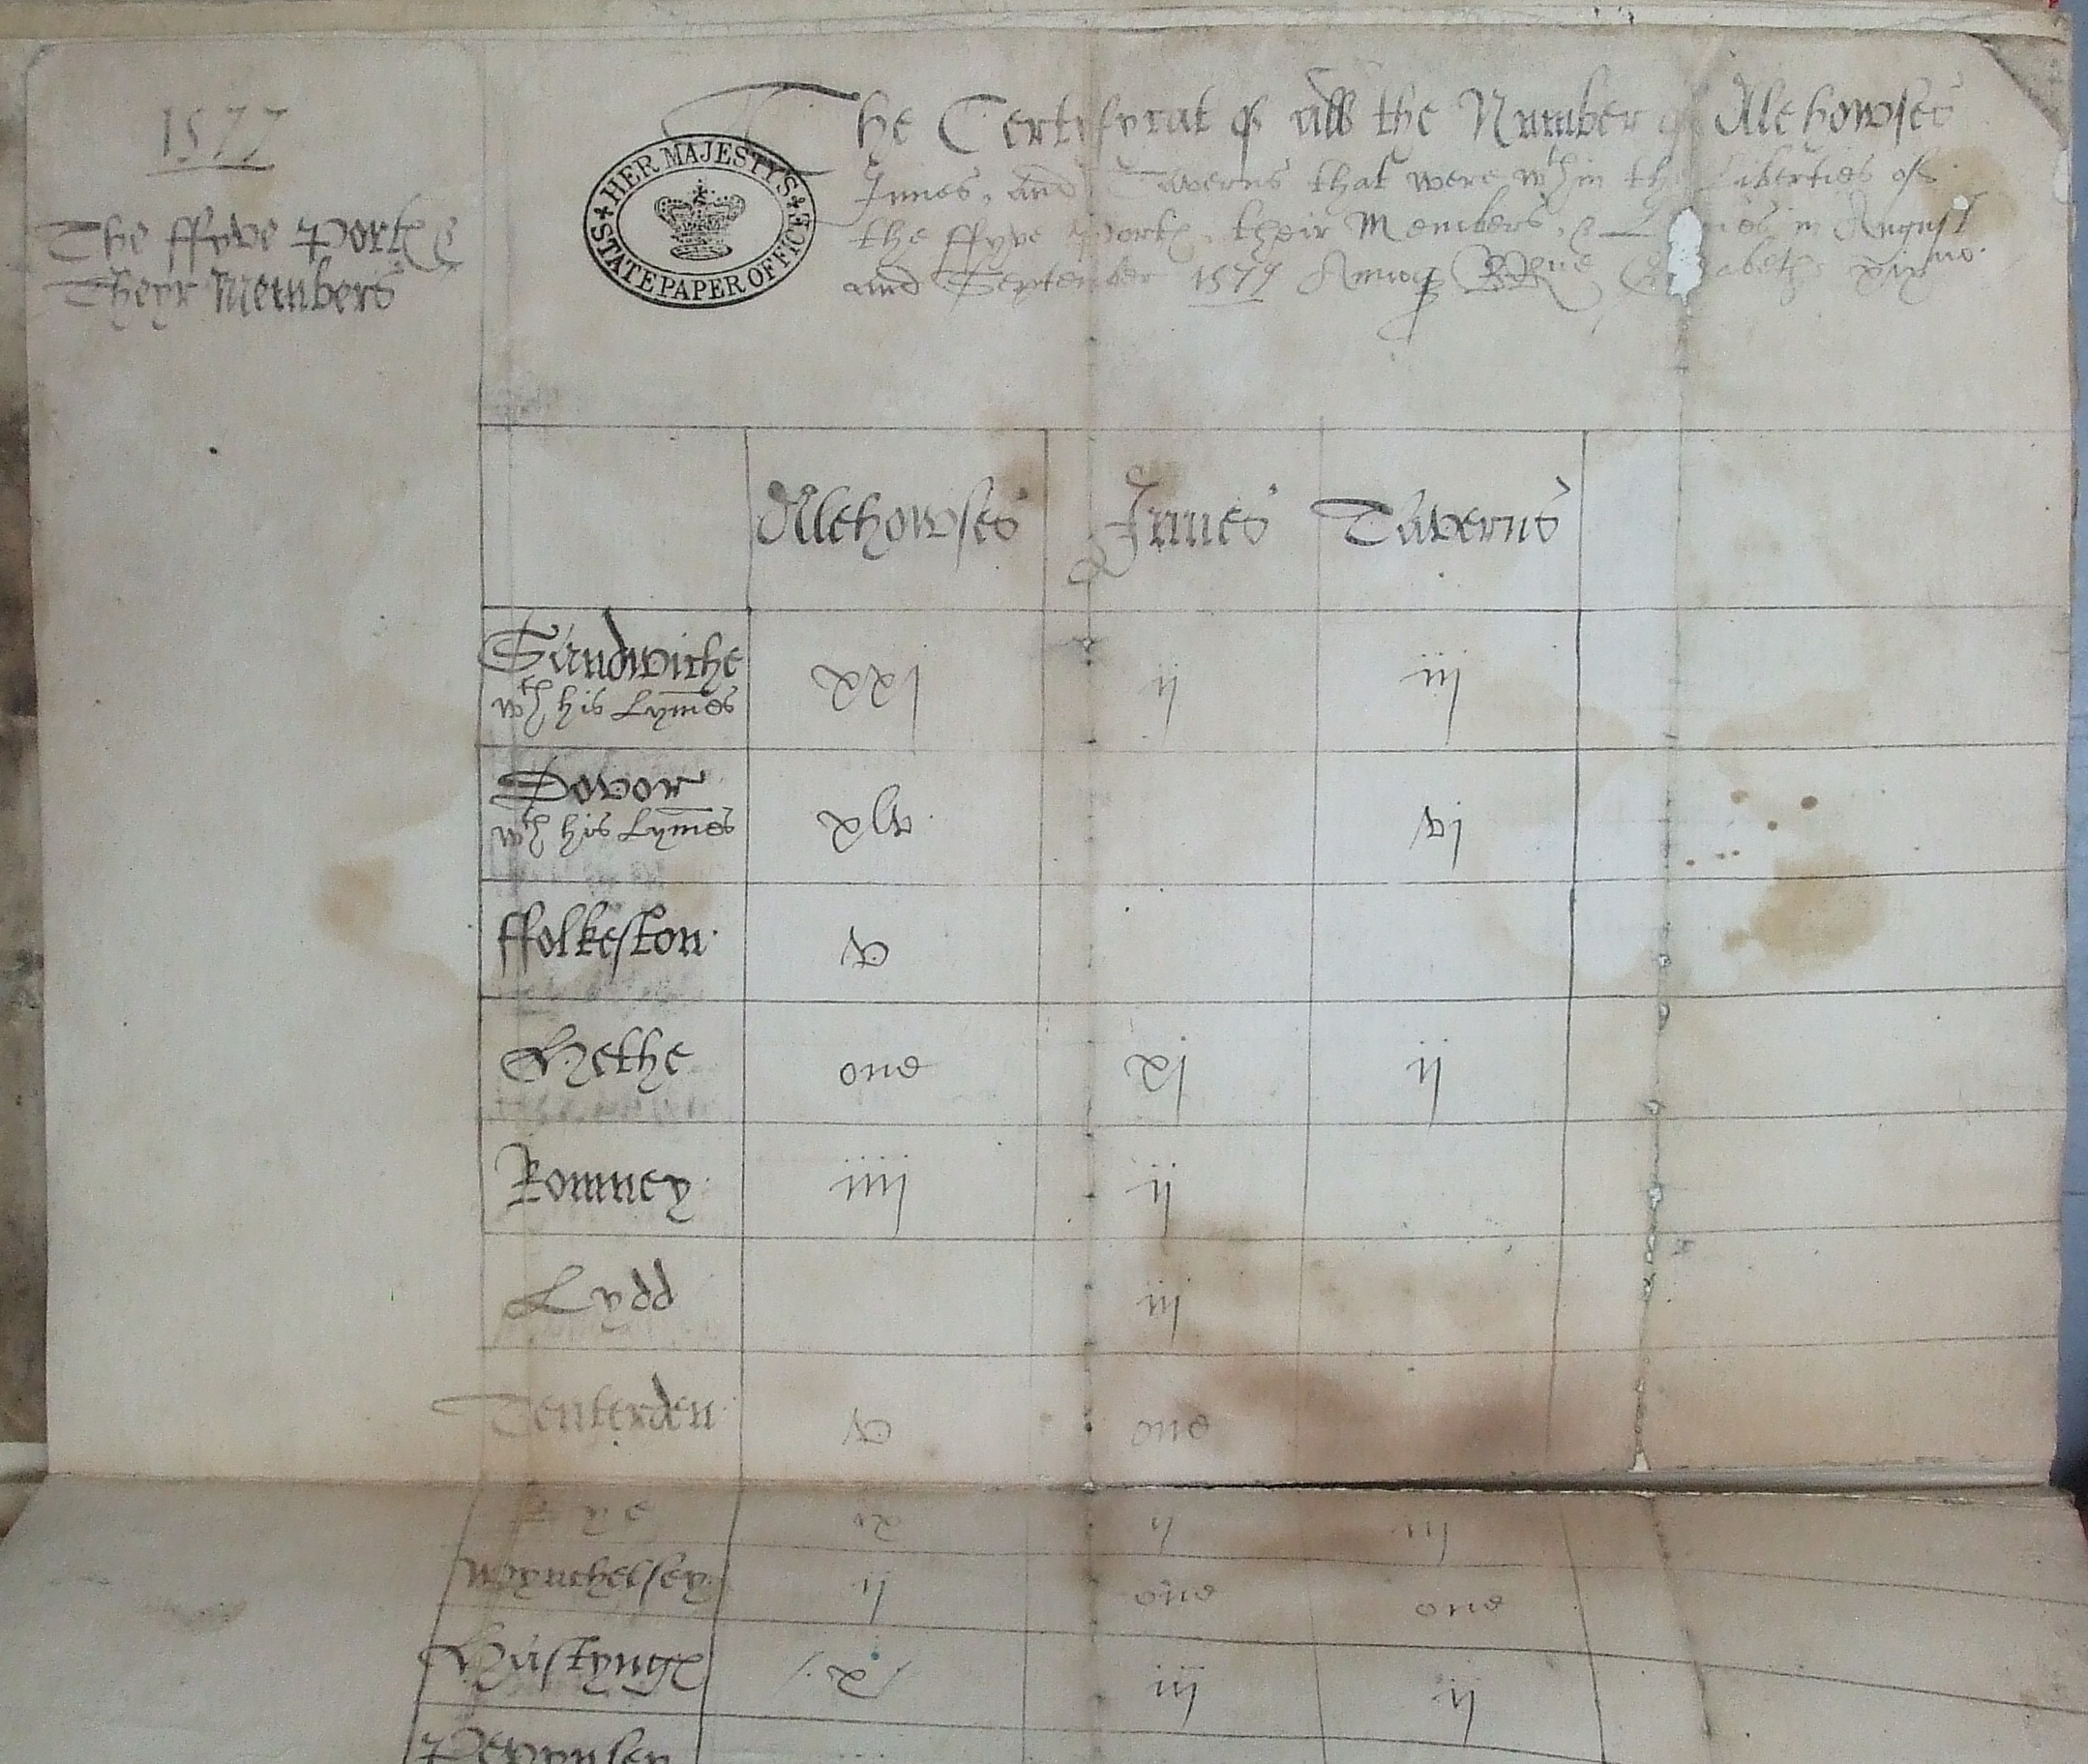 1577
The ffyve Portes &
Theyr Members
HER MAJESTYS STATE PAPER OFFICE
The Certifycat of all the Number of Alehowses
Innes, and Taverns that were wthin the Liberties of
the ffyve Portes, their Members, & Lymes in August
and September 1577 Annoq RRne Elizabeth xixno.
Alehowses Innes Taverns
Sandwiche xxj ij iij
wth his Lymes
Dovor xlv vj
wth his Lymes
ffolkeston v
Hethe one xj ij
Romney iiij ij
Lydd iij
Tenterden v one
Rye ij iij
Wynchelsey ij one one
Hastynges x iij ij
Pevynsey